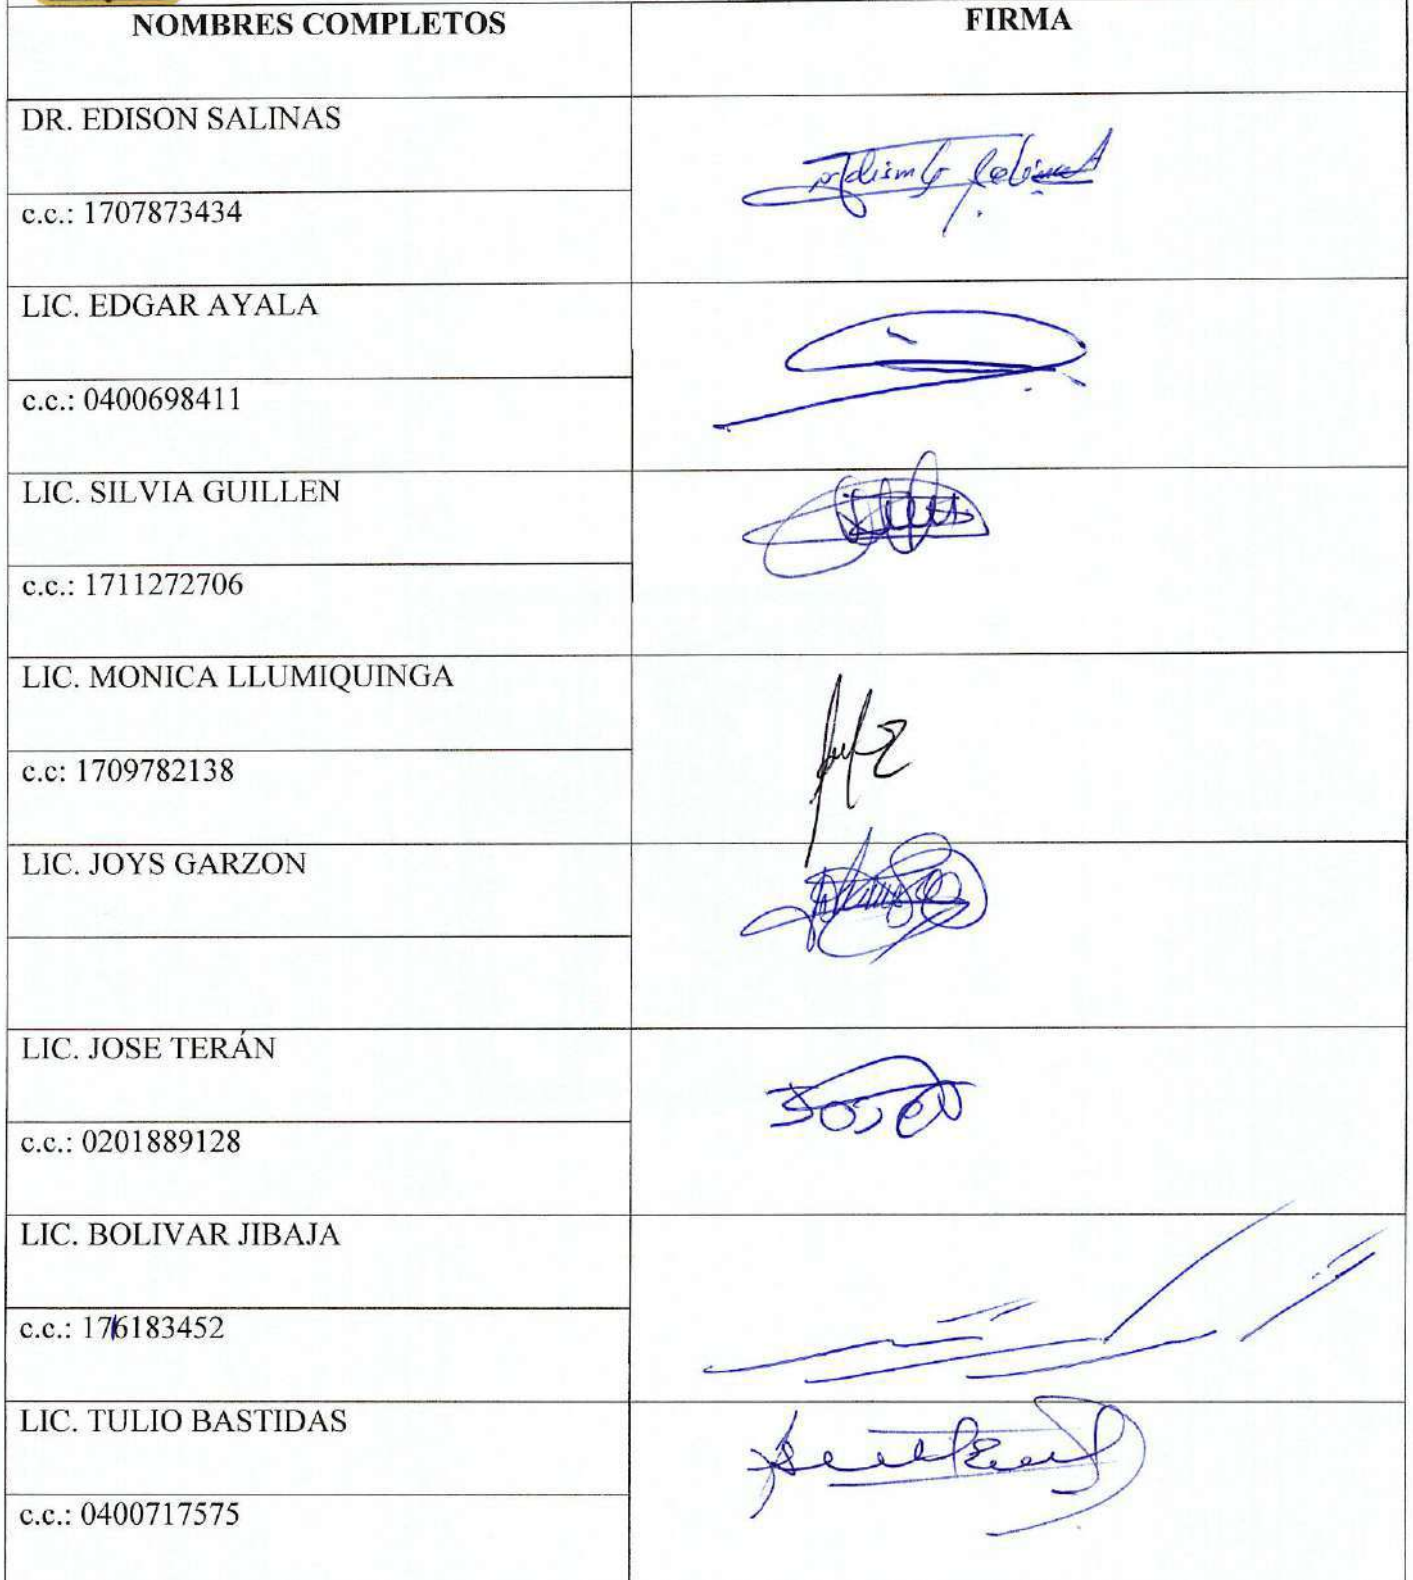 NOMBRES COMPLETOS
FIRMA
DR. EDISON SALINAS
c.c.: 1707873434
LIC. EDGAR AYALA
c.c.: 0400698411
LIC. SILVIA GUILLEN
c.c.: 1711272706
LIC. MONICA LLUMIQUINGA
c.c: 1709782138
LIC. JOYS GARZON
LIC. JOSE TERÁN
c.c.: 0201889128
LIC. BOLIVAR JIBAJA
c.c.: 1716183452
LIC. TULIO BASTIDAS
c.c.: 0400717575